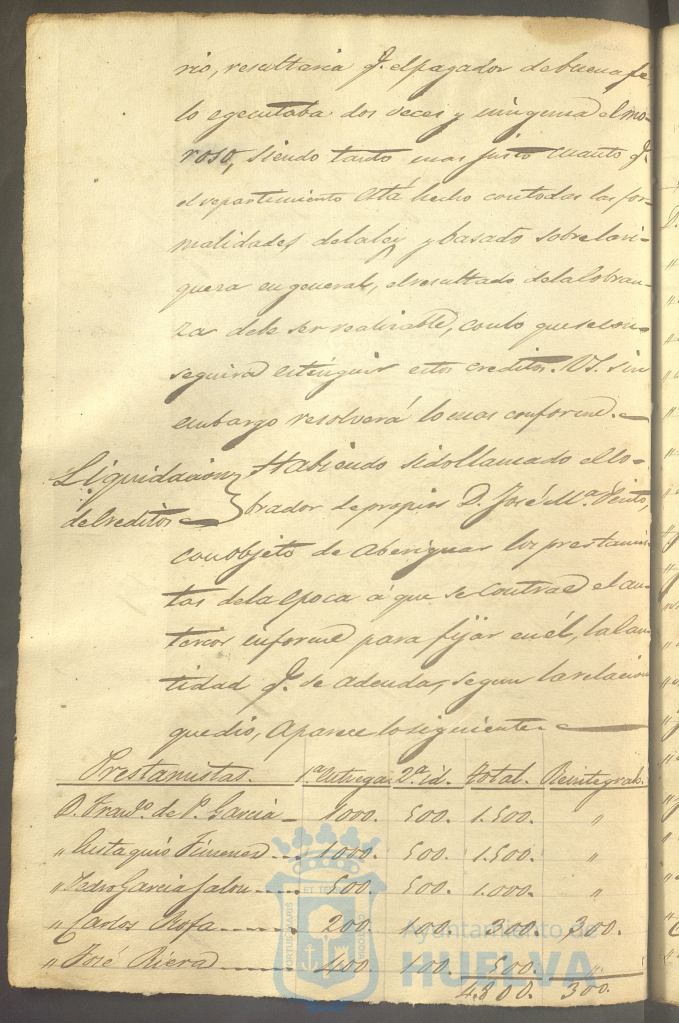 rio, resultaria q.e el pagador de buena fe,
lo egecutaba dos veces y ninguna el mo-
roso, siendo tanto mas justo cuanto q.e
el repartimiento está hecho con todas las for-
malidades de la ley y basado sobre la ri-
queza en general, el resultado de la cobran-
za debe ser realizable, con lo que se con-
seguirá estinguir estos creditos. VS. sin
embargo resolverá lo mas conforme.
Liquidacion
de Creditos
Habiendo sido llamado el Co-
brador de propios D. José M.a
con objeto de aberiguar los prestamis-
tas de la epoca á que se contrae el an-
terior informe para fijar en él, la can-
tidad q.e se adeuda, segun la relacion
que dio, aparece lo siguiente.
Prestamistas. 1.a entrega. 2.a id. total. Reintegrab.
D. Fran.co de P. Garcia 1000. 500. 1.500. "
" Eutaquio Ximenez 1000. 500. 1.500. "
" Pedro Garcia Jalon 500. 500. 1.000. "
" Carlos Rofa 200. 100. 300. 300.
" José Riera 400. 100. 500. "
4.800. 300.
Ayuntamiento de
HUELVA